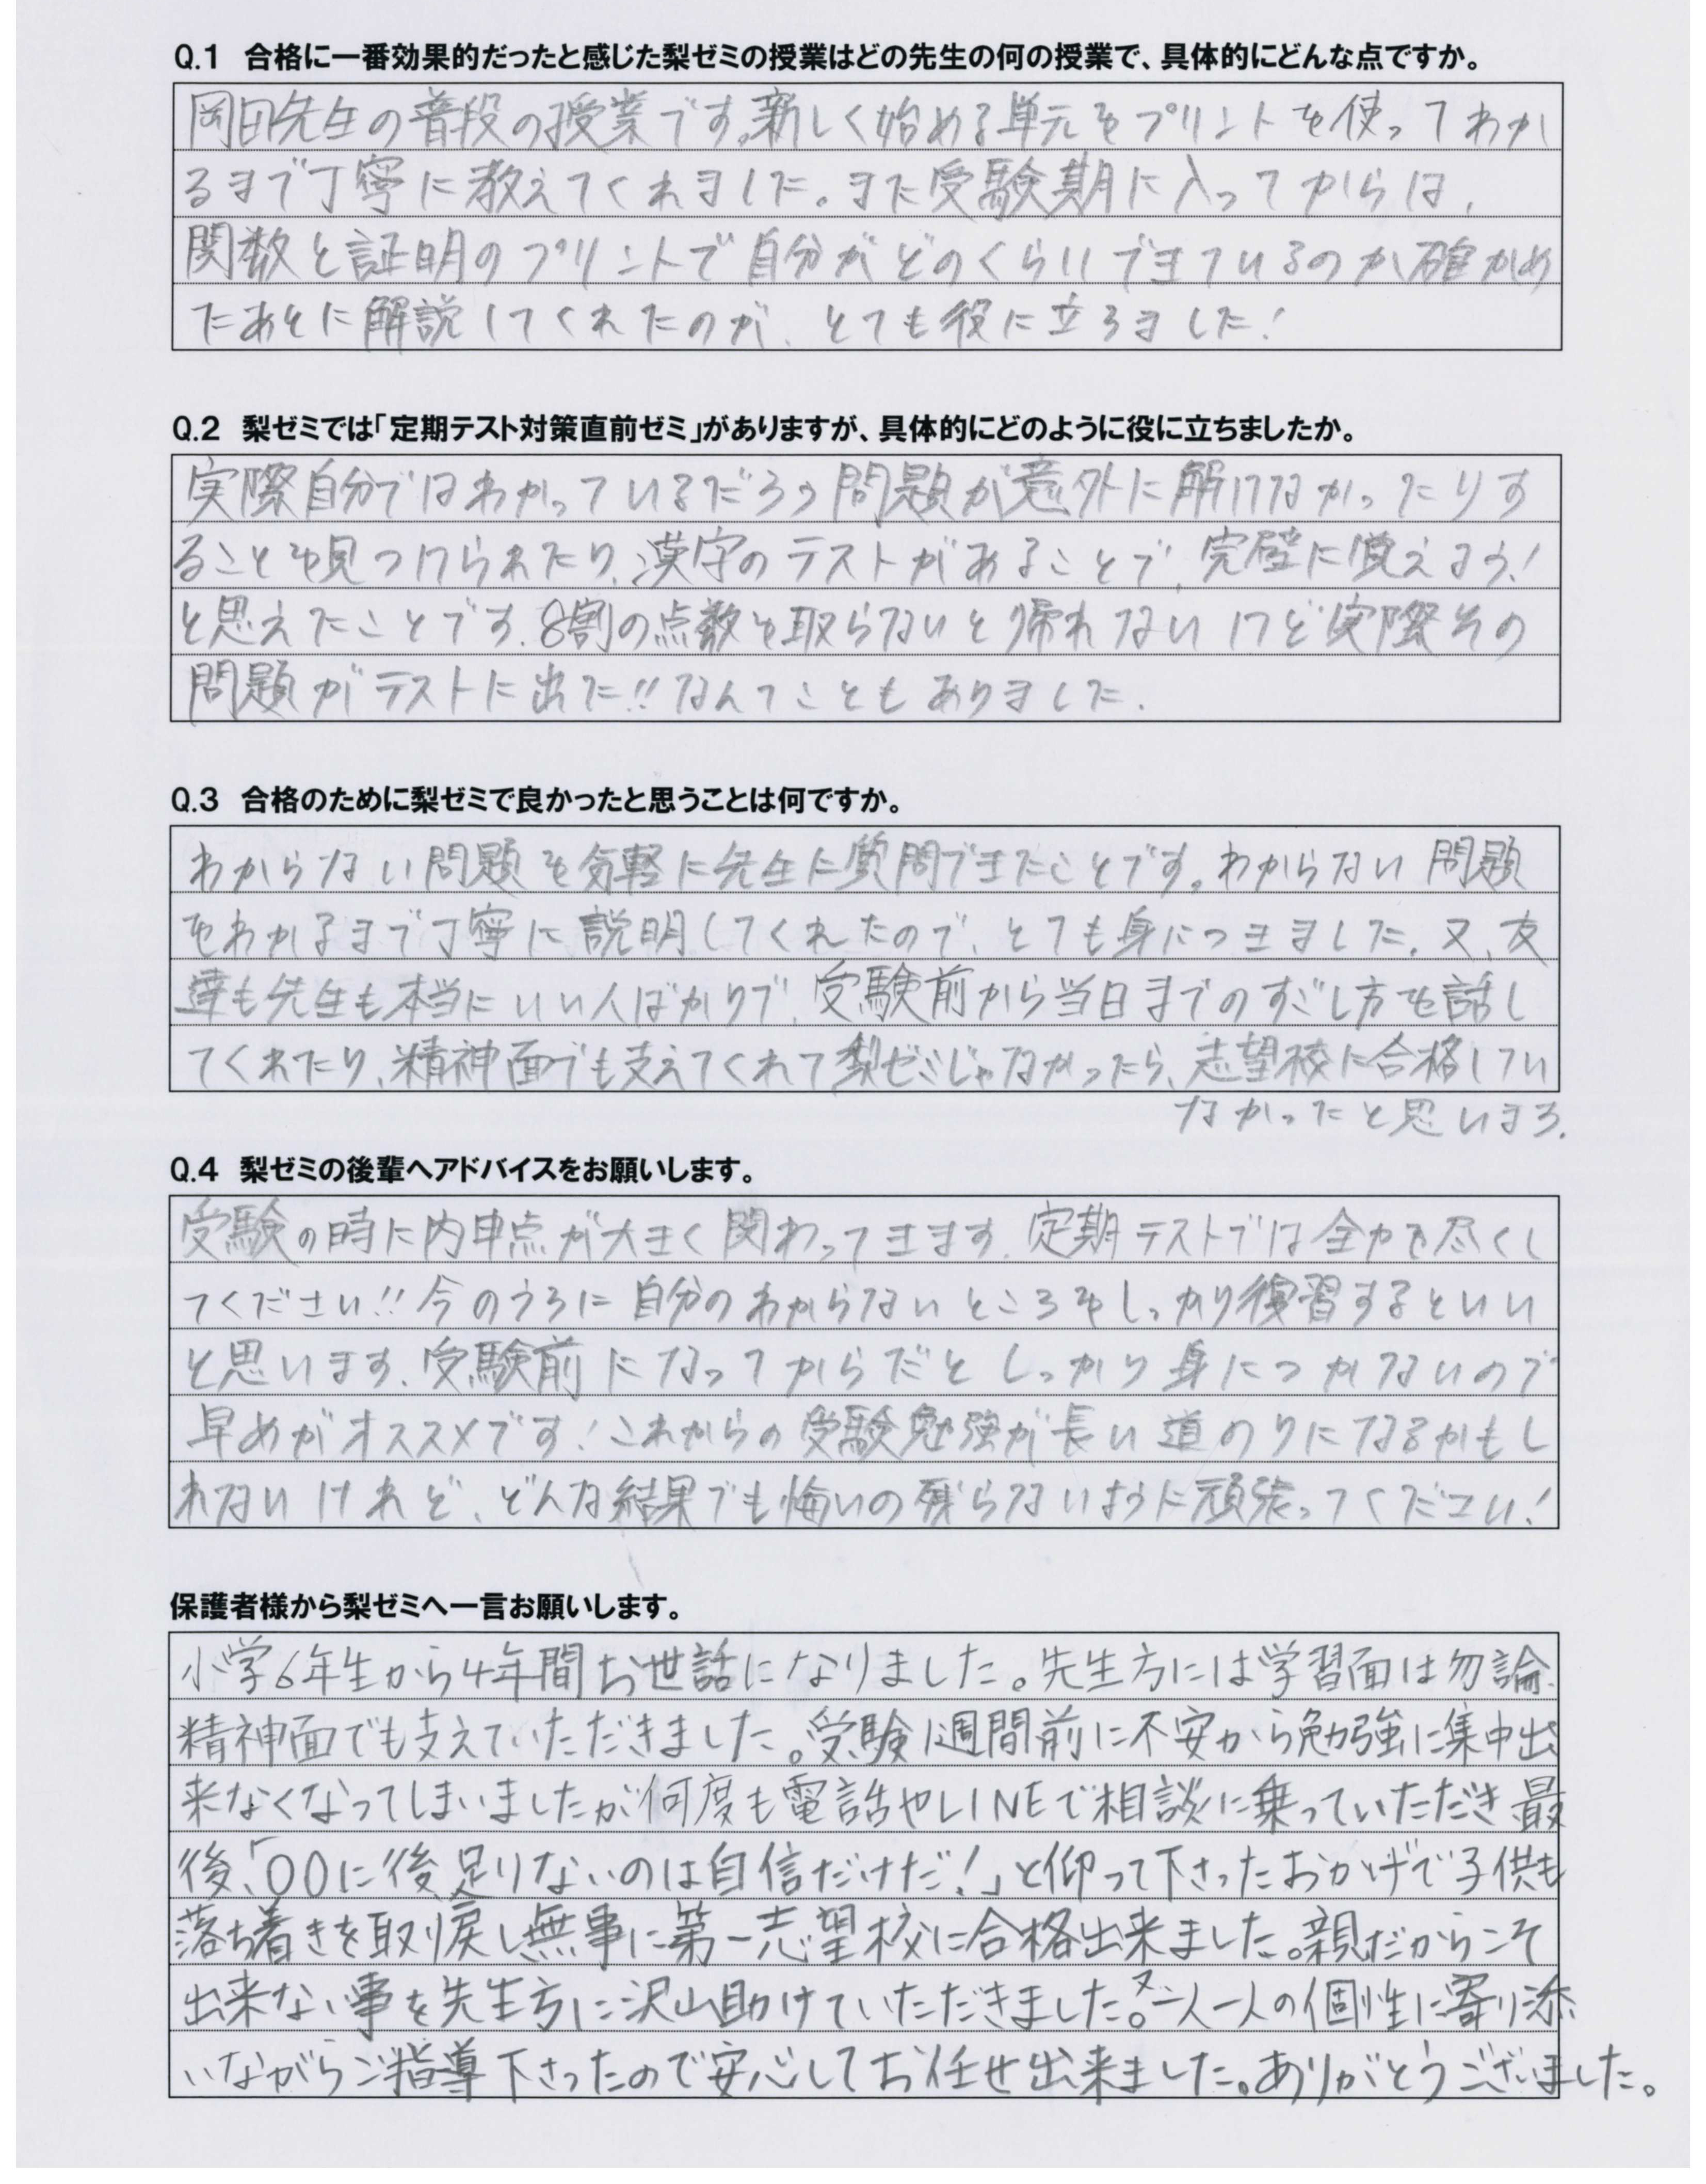 Q.1 合格に一番効果的だったと感じた梨ゼミの授業はどの先生の何の授業で、具体的にどんな点ですか。
岡田先生の普段の授業です。新しく始める単元をプリントを使ってわか
るまで丁寧に教えてくれました。また受験期に入ってからは、
関数と証明のプリントで自分がどのくらいできているのか確かめ
たあとに解説してくれたのが、とても役に立ちました!
Q.2 梨ゼミでは「定期テスト対策直前ゼミ」がありますが、具体的にどのように役に立ちましたか。
実際自分ではわかっているだろう問題が意外に解けなかったりす
ることを見つけられたり、漢字のテストがあることで、完璧に覚えよう!
と思えたことです。8割の点数を取らないと帰れないけど実際その
問題がテストに出た!!なんてこともありました。
Q.3 合格のために梨ゼミで良かったと思うことは何ですか。
わからない問題を気軽に先生に質問できたことです。わからない問題
をわかるまで丁寧に説明してくれたので、とても身につきました。又、友
達も先生も本当にいい人ばかりで、受験前から当日までのすごし方を話し
てくれたり、精神面でも支えてくれて梨ゼミじゃなかったら、志望校に合格してい
なかったと思います。
Q.4 梨ゼミの後輩へアドバイスをお願いします。
受験の時に内申点が大きく関わってきます。定期テストでは全力を尽くし
てください!!今のうちに自分のわからないところをしっかり復習するといい
と思います。受験前になってからだとしっかり身につかないので
早めがオススメです!これからの受験勉強が長い道のりになるかもし
れないけれど、どんな結果でも悔いの残らないように頑張ってください!
保護者様から梨ゼミへ一言お願いします。
小学6年生から4年間お世話になりました。先生方には学習面は勿論、
精神面でも支えていただきました。受験1週間前に不安から勉強に集中出
来なくなってしまいましたが何度も電話やLINEで相談に乗っていただき最
後、「〇〇に後足りないのは自信だけだ!」と仰って下さったおかげで子供も
落ち着きを取り戻し無事に第一志望校に合格出来ました。親だからこそ
出来ない事を先生方に沢山助けていただきました。又一人一人の個性に寄り添
いながらご指導下さったので安心してお任せ出来ました。ありがとうございました。